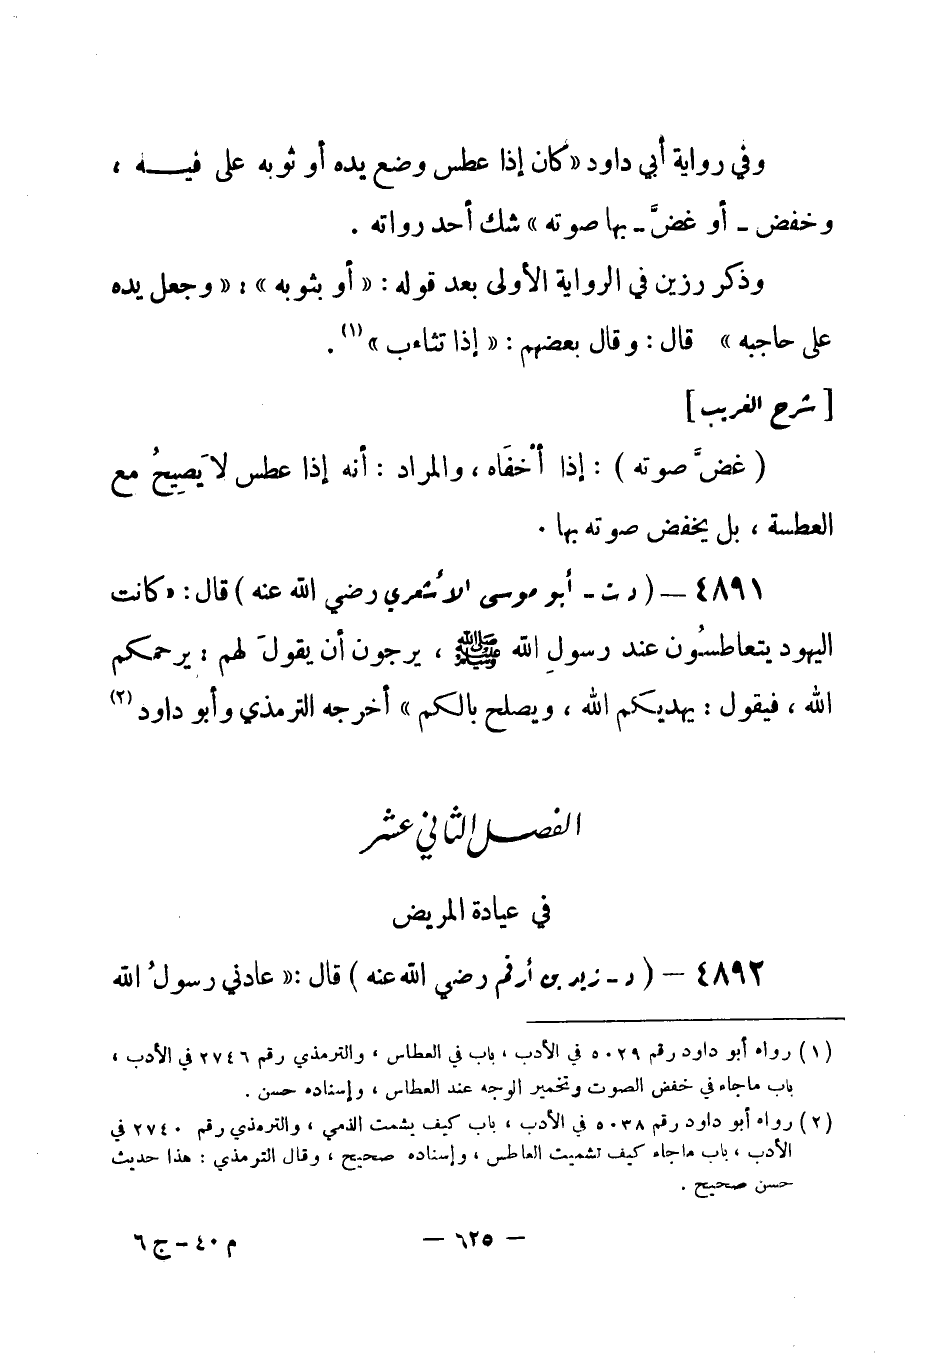 وفي رواية أبي داود «كان إذا عطس وضع يده أو ثوبه على فيـــه ،
وخفض ـ أو غضَّ ـ بها صوته » شك أحد رواته .
وذكر رزين في الرواية الأولى بعد قوله : « أو بثوبه » : « وجعل يده
على حاجبه » قال : وقال بعضهم : « إذا تثاءب »(١) .
[ شرح الغريب ]
( غضَّ صوته ) : إذا أخْفَاه ، والمراد : أنه إذا عطس لا يَصِيحُ مع
العطسة ، بل يخفض صوته بها .
٤٨٩١ — ( د ت ـ أبو موسى الأشعري رضي الله عنه ) قال : «كانت
اليهود يتعاطسُون عند رسولِ الله ﷺ ، يرجون أن يقولَ لهم : يرحمكم
الله ، فيقول : يهديكم الله ، ويصلح بالكم » أخرجه الترمذي وأبو داود(٢)
الفصل الثاني عشر
في عيادة المريض
٤٨٩٢ — ( د ـ زيد بن أرقم رضي الله عنه ) قال :« عادني رسولُ الله
(١) رواه أبو داود رقم ٥٠٢٩ في الأدب ، باب في العطاس ، والترمذي رقم ٢٧٤٦ في الأدب ،
باب ماجاء في خفض الصوت وتخمير الوجه عند العطاس ، وإسناده حسن .
(٢) رواه أبو داود رقم ٥٠٣٨ في الأدب ، باب كيف يشمت الذمي ، والترمذي رقم ٢٧٤٠ في
الأدب ، باب ماجاء كيف تشميت العاطس ، وإسناده صحيح ، وقال الترمذي : هذا حديث
حسن صحيح .
— ٦٢٥ —
م ٤٠ – ج ٦